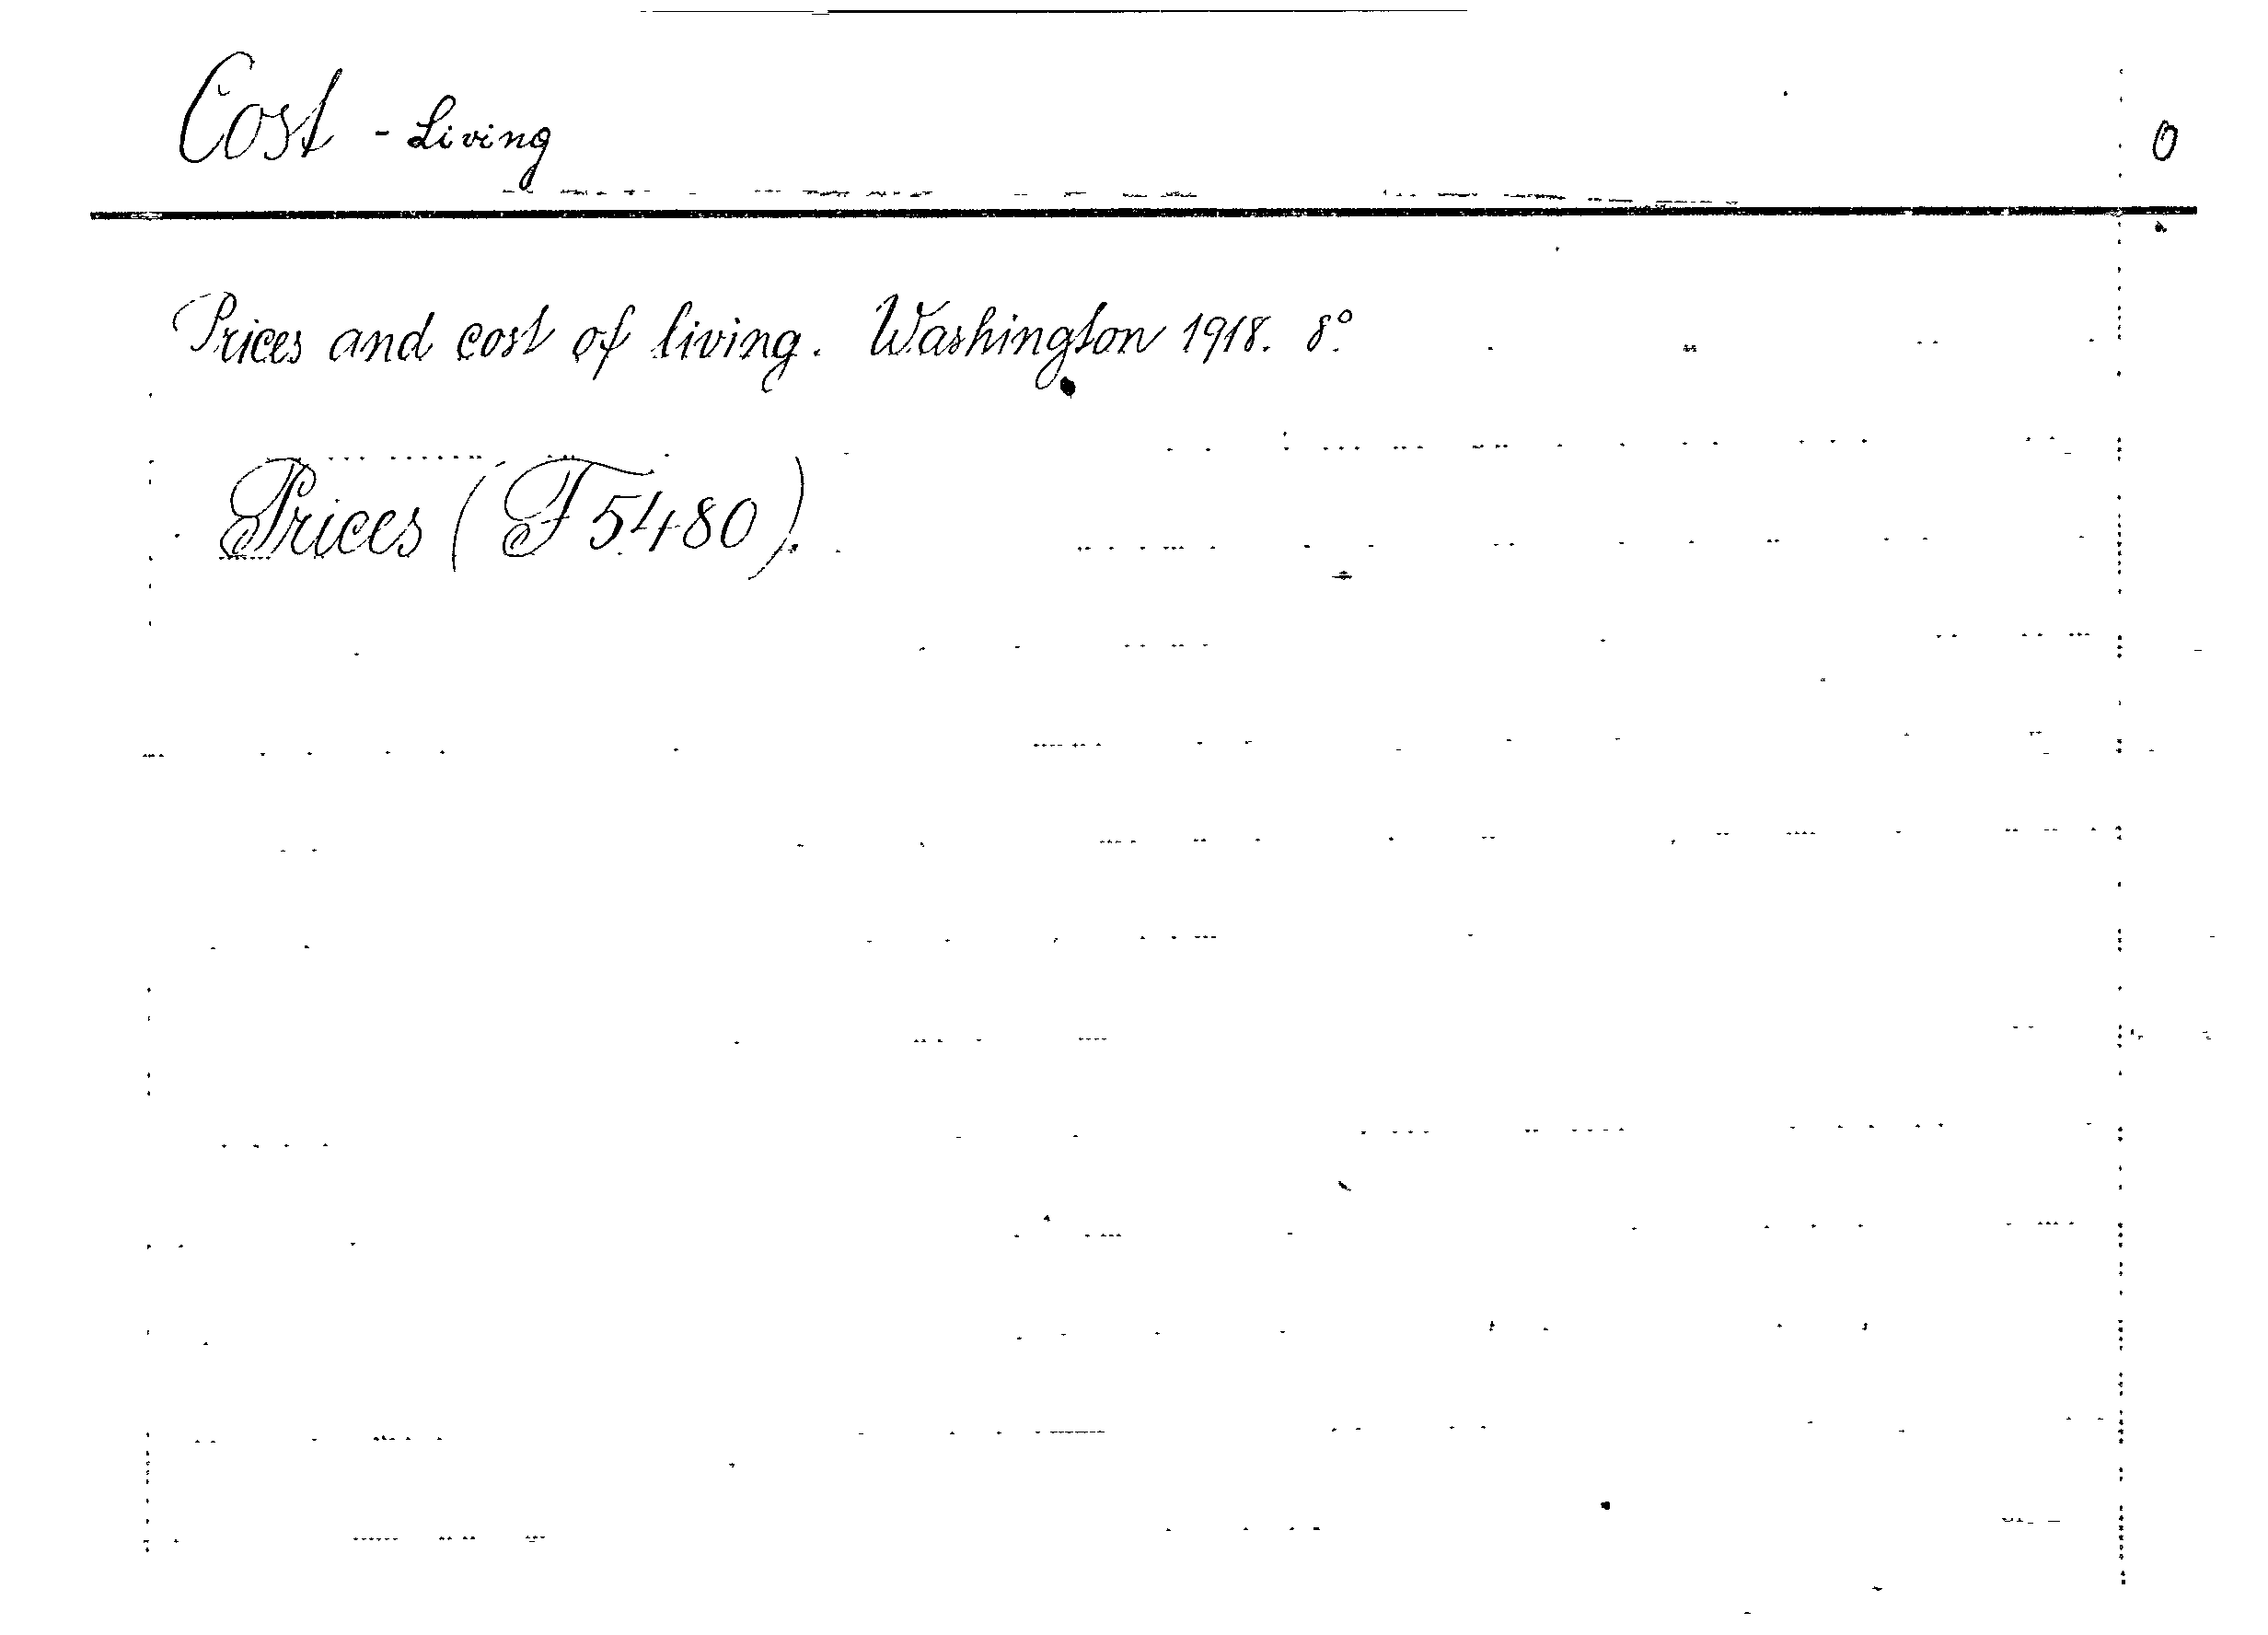 Cost - Living 0
Prices and cost of living. Washington 1918. 8°.
Prices (F 5480).